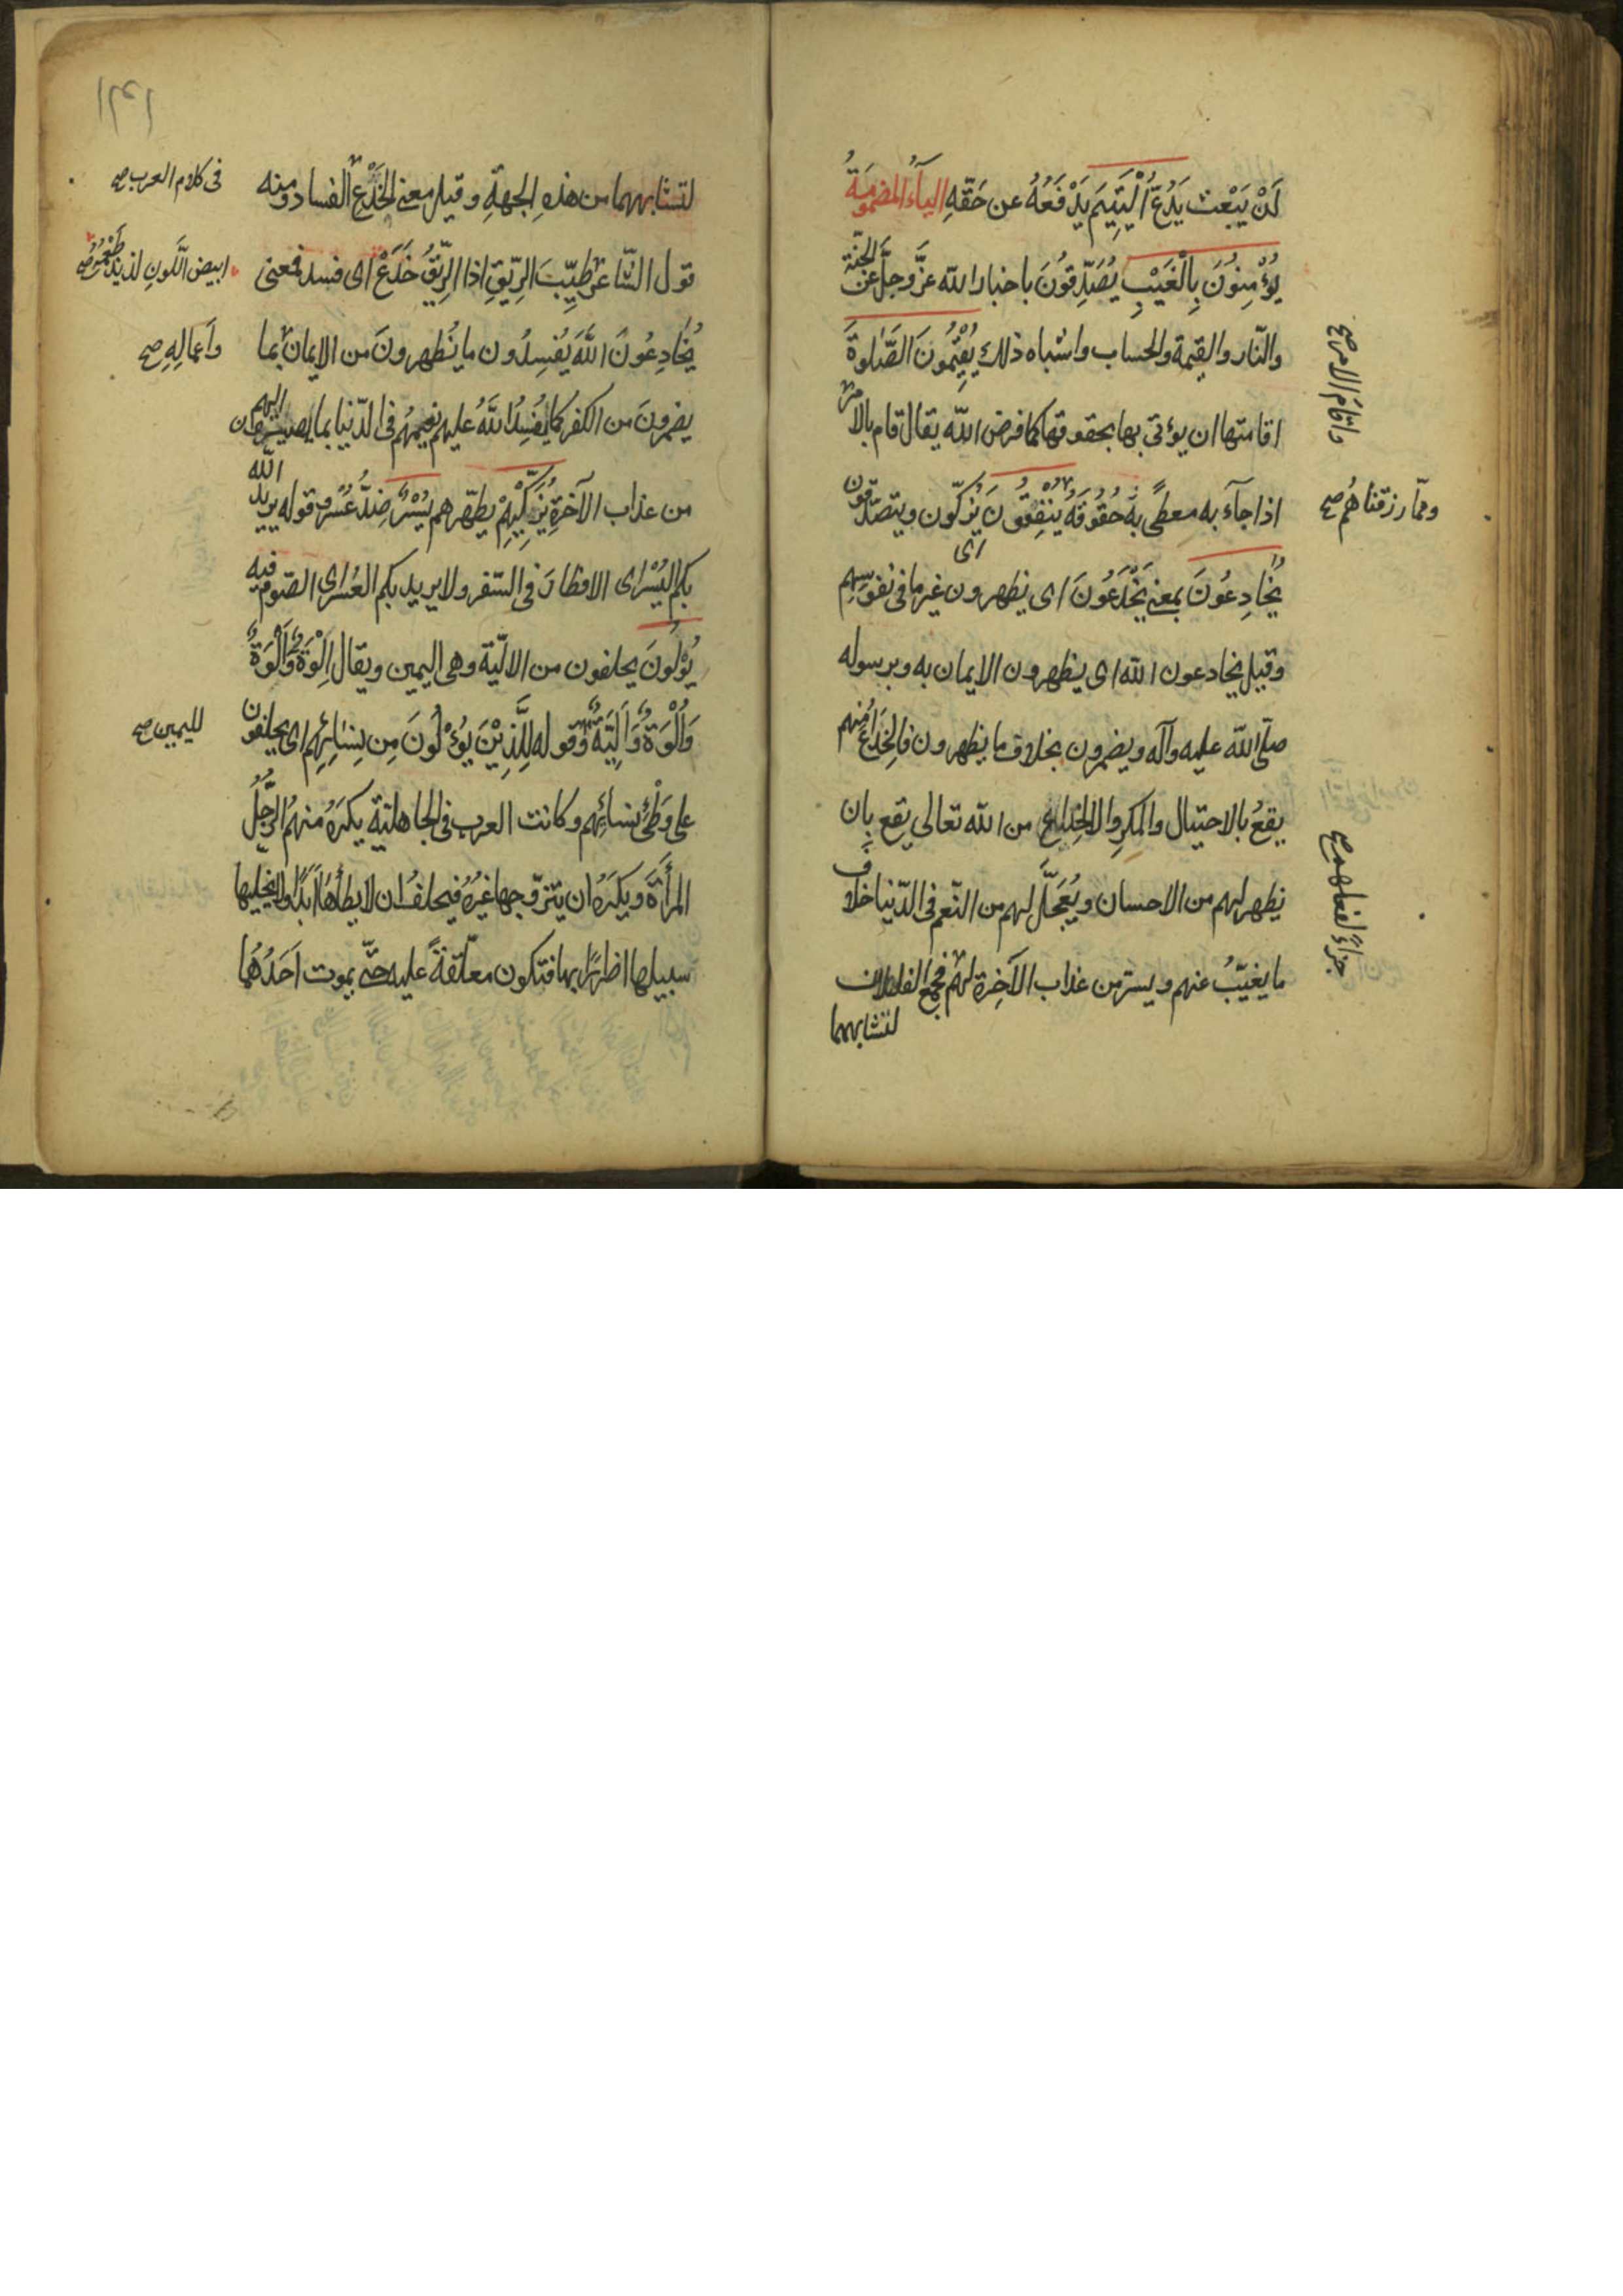 لَنْ يَبْعَثَ يَدُعُّ الْيَتِيمَ يَدْفَعُهُ عن حَقّهِ الياءُ المضمومَةُ
يُؤْمِنُونَ بِالْغَيْبِ يُصَدِّقُونَ باخبار الله عزَّ وجلَّ عن الجنّة
والنّار والقيمة والحساب واشباه ذلك يُقِيمُونَ الصَّلوةَ
اقامتها ان يؤتى بها بحقوقها كما فرض الله يقال قام بالامر
واقام الامر صح
اذا جآء به معطًى به حُقُوقَهُ يُنْفِقُونَ اى يُزكّون ويتصدّقون
وممّا رزقناهُم صح
يُخَادِعُونَ بمعنى يَخْدَعُونَ اى يظهرون غير ما فى نفوسهم
وقيل يخادعون الله اى يظهرون الايمان به وبرسوله
صلّى الله عليه وآله ويضمرون بخلاف ما يظهرون فالخِدَاعُ منهم
يقعُ بالاحتيال والمكر والخداع من الله تعالى يقع بان
يظهر لهم من الاحسان ويُعَجّلَ لهم من النّعم فى الدّنيا خلافَ
ما يغيّبُ عنهم ويستر من عذاب الآخِرة لهم فجمع الفعلان
جزاءً لفعلهم صح
لتشابههما
لتشابههما من هذهِ الجهةِ وقيل معنى الخَدْعِ الفساد ومنه
فى كلام العرب صح
قول الشّاعر طَيِّبَ الرِّيقِ اذا الرِّيقُ خَدَعْ اى فسد فمعنى
ابيض اللَّونِ لذيذ طَعْمُهُ صح
يُخَادِعُونَ اللهَ يُفسِدُون ما يُظهرونَ من الايمان بما
واَعمالِهِ صح
يضمرونَ من الكفر كما يُفسِدُ اللهُ عليهم نعيمهُم فى الدّنيا بما يصيرون اليهم
من عذاب الآخرةِ يُزَكِّيهِمْ يطهّرهم يُسْرٌ ضِدُّ عُسْرٍ وقوله يريد الله
بكم اليُسْر اى الافطارَ فى السّفر ولا يريد بكم العُسر اى الصّوم فيه
يُؤْلُونَ يحلفون من الاليّة وهى اليمين ويقال اِلْوَةٌ وَاَلْوَةٌ
وَاُلْوَةٌ وَاَلِيَّةٌ وقوله لِلَّذِيْنَ يُؤْلُونَ مِن نِسَائِهِم اى يحلفون
لليمين صح
على وَطْئِ نسائِهم وكانت العرب فى الجاهليّة يكرَهُ منهمُ الرَّجُلُ
المرأَةَ ويكرَهُ ان يتزوّجها غيرُهُ فيحلفُ ان لا يطأَهَا اَبَدًا ولا يخليها
سبيلها اضرارًا بها فتكون معلّقةً عليه حتّى يموت اَحَدُهُما